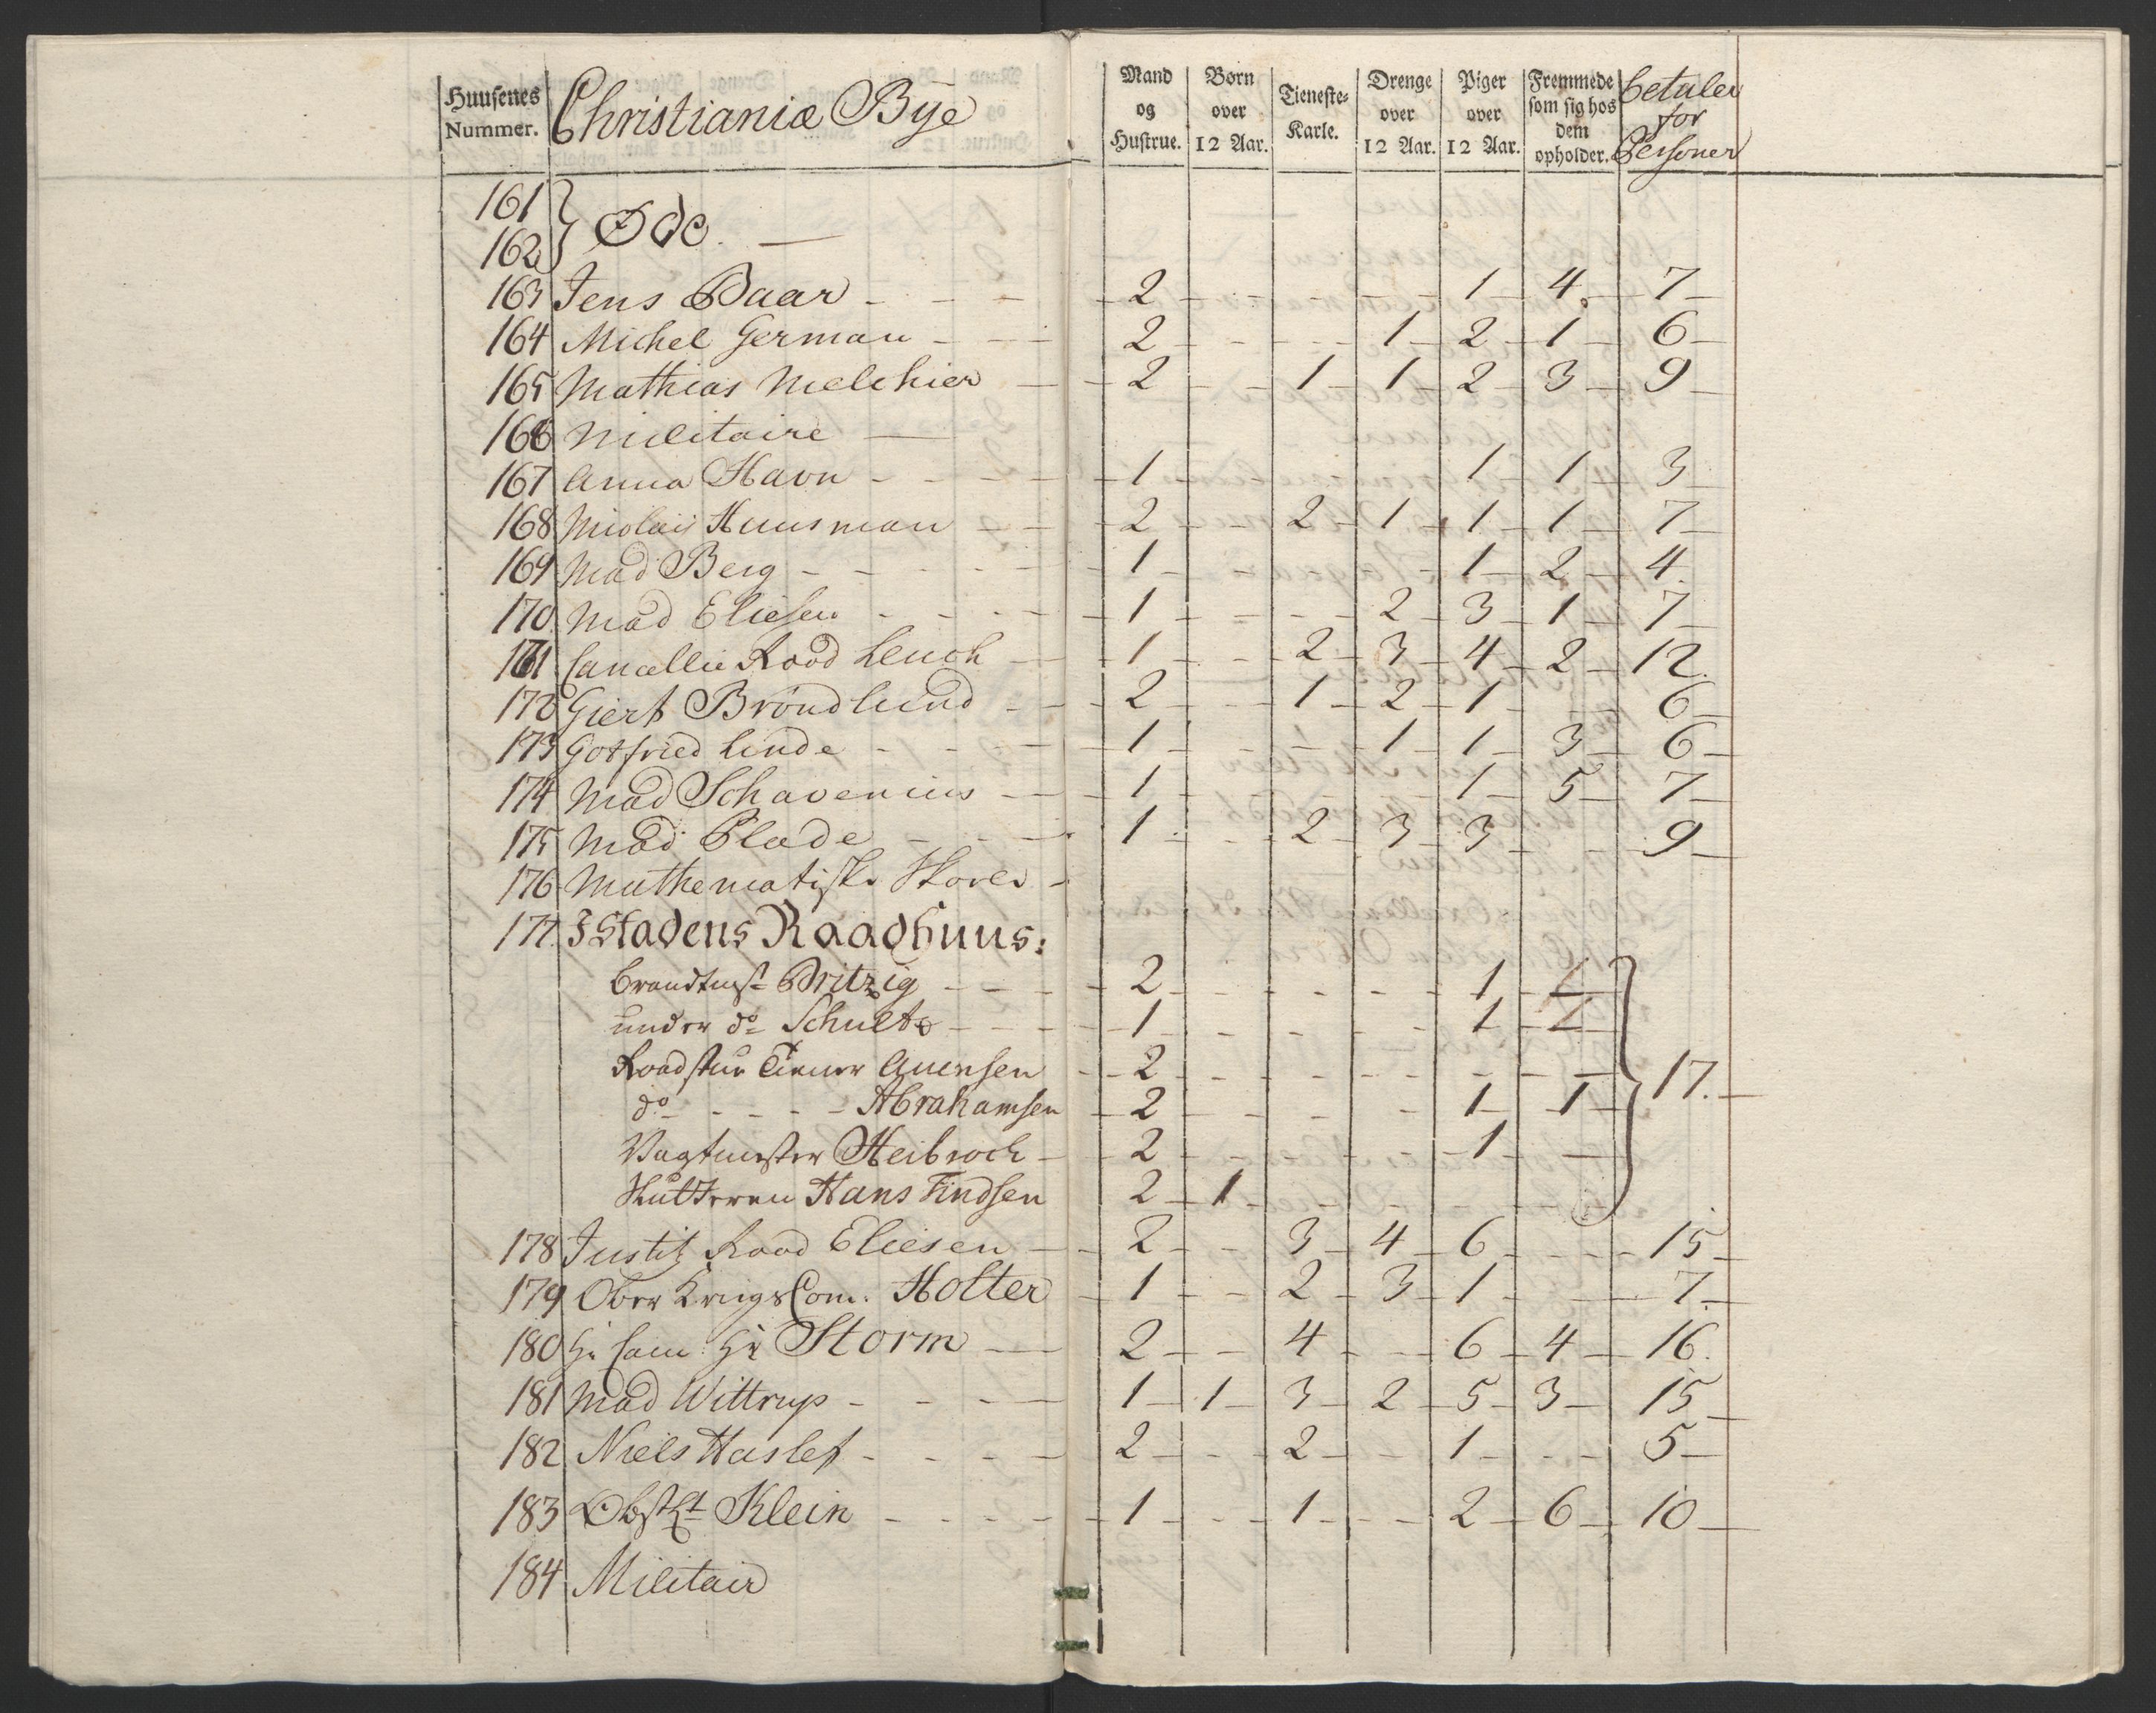 Huusenes Nummer. Christianiæ Bye Mand og Hustrue. Børn over 12 Aar. Tieneste-Karle. Drenge over 12 Aar. Piger over 12 Aar. Fremmede som sig hos dem opholder. betaler for Personer
161
162 } Øde. —
163 Jens Baar - - - 2 - - - - 1 - 4. - 7 -
164 Michel German - - - 2 - - - - 1 - 2 - 1 - 6 -
165 Mathias Melchier - - 2 - - 1 - 1 - 2 - 3 - 9 -
166 Militaire —
167 Anna Havn - - - - 1 1 - 1 - 3
168 Huusman - - 2 - - 2 - 1 - 1 - 1 - 7 -
169 Mad Berg - - - - - 1 - - 1 - 2 - 4.
170. Mad Eliesen - - - - 1 - - - - 2 - 3 - 1 - 7 -
171 Cancellie Raad Leuch - 1 - - 2 - 3 - 4 - 2 - 12.
172 Giert Brøndlund - - 2 - - 1 - 2 - 1 - 6 -
173 Gotfried Linde - - - - 1 - - - 1 - 1 - 3 - 6 -
174 Mad Schavenius - - 1 - - - - 1 - 5 - 7 -
175 Mad Plade - - - 1 - - 2 - 3 - 3 - - 9 -
176 Mathematiske Skoele -
177. I Stadens Raadhuus:
Brandtmst Britzig - - - - 2 - - - - - 1 -
under do Schultz - - - - 1 - - - - - 1 -
Raadstue Tiener Auensen - - 2 - - - - - - - 17. -
do - - - - - Abrahamsen - 2 - - - - - 1 - 1 -
Vagtmester Heibroch - 2 - - - - 1 -
Hans Findsen 2 - 1 - - - -
178 Justitz Raad Eliesen - - 2 - - 3 - 4 - 6 - - - - 15 -
179 Ober KrigsCom. Holter - 1 - - 2 - 3 - 1 - - 7. -
180 Storm — 2 - - 4 - - - 6 - 4 - 16.
181 Mad Wittrup - - - - 1 - 1 - 3 - 2 - 5 - 3 - 15 -
182 Niels Haslef - - - - 2 - - - 2 - - - 1 - - - 5 -
183 Klein - - - - - 1 - - - 1 - - - 2 - 6 - 10 -
184 Militair